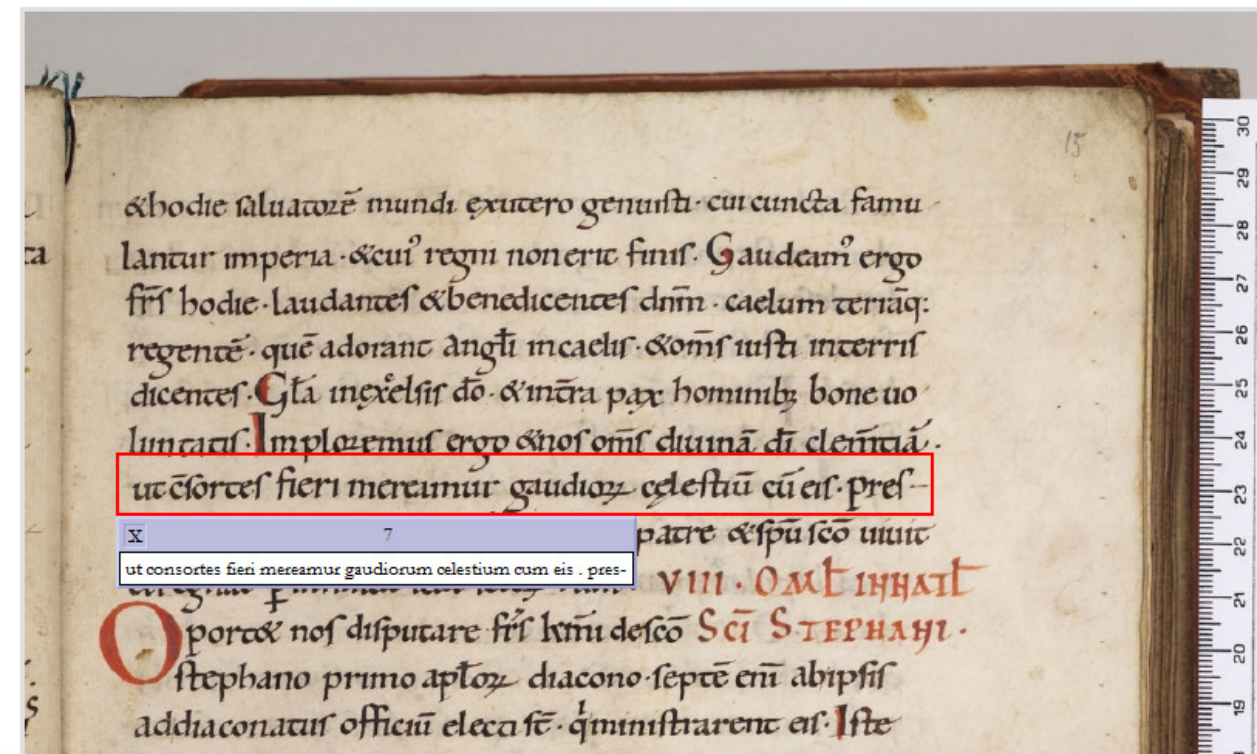 15
&hodie saluatorē mundi exutero genuisti · cui cuncta famu
lantur imperia · &cui᾿ regni nonerit finis. Gaudeam᾿ ergo
fr̄s hodie · laudantes &benedicentes dn̄m · caelum terrāq:
regentē · quē adorant angl̄i incaelis · &om̄s iusti interris
dicentes · Gl̄a inexcelsis dō · &int̄ra pax hominibꝫ bone uo
luntatis. Imploremus ergo &nos om̄s diuinā dī clem̄tiā.
ut c̄sortes fieri mereamur gaudioꝝ cęlestiū cū eis · pres-
X 7
patre &spū scō uiuit
ut consortes fieri mereamur gaudiorum celestium cum eis . pres-
VIII · OML̄ INNATL̄
Oport& nos disputare fr̄s km̄i descō SC̄I STEPHANI ·
stephano primo apl̄oꝝ diacono · septē eni᷒ abipsis
addiaconatus officiū electi st̄ · q᷒ministrarent eis · Iste
30
29
28
27
26
25
24
23
22
21
20
19